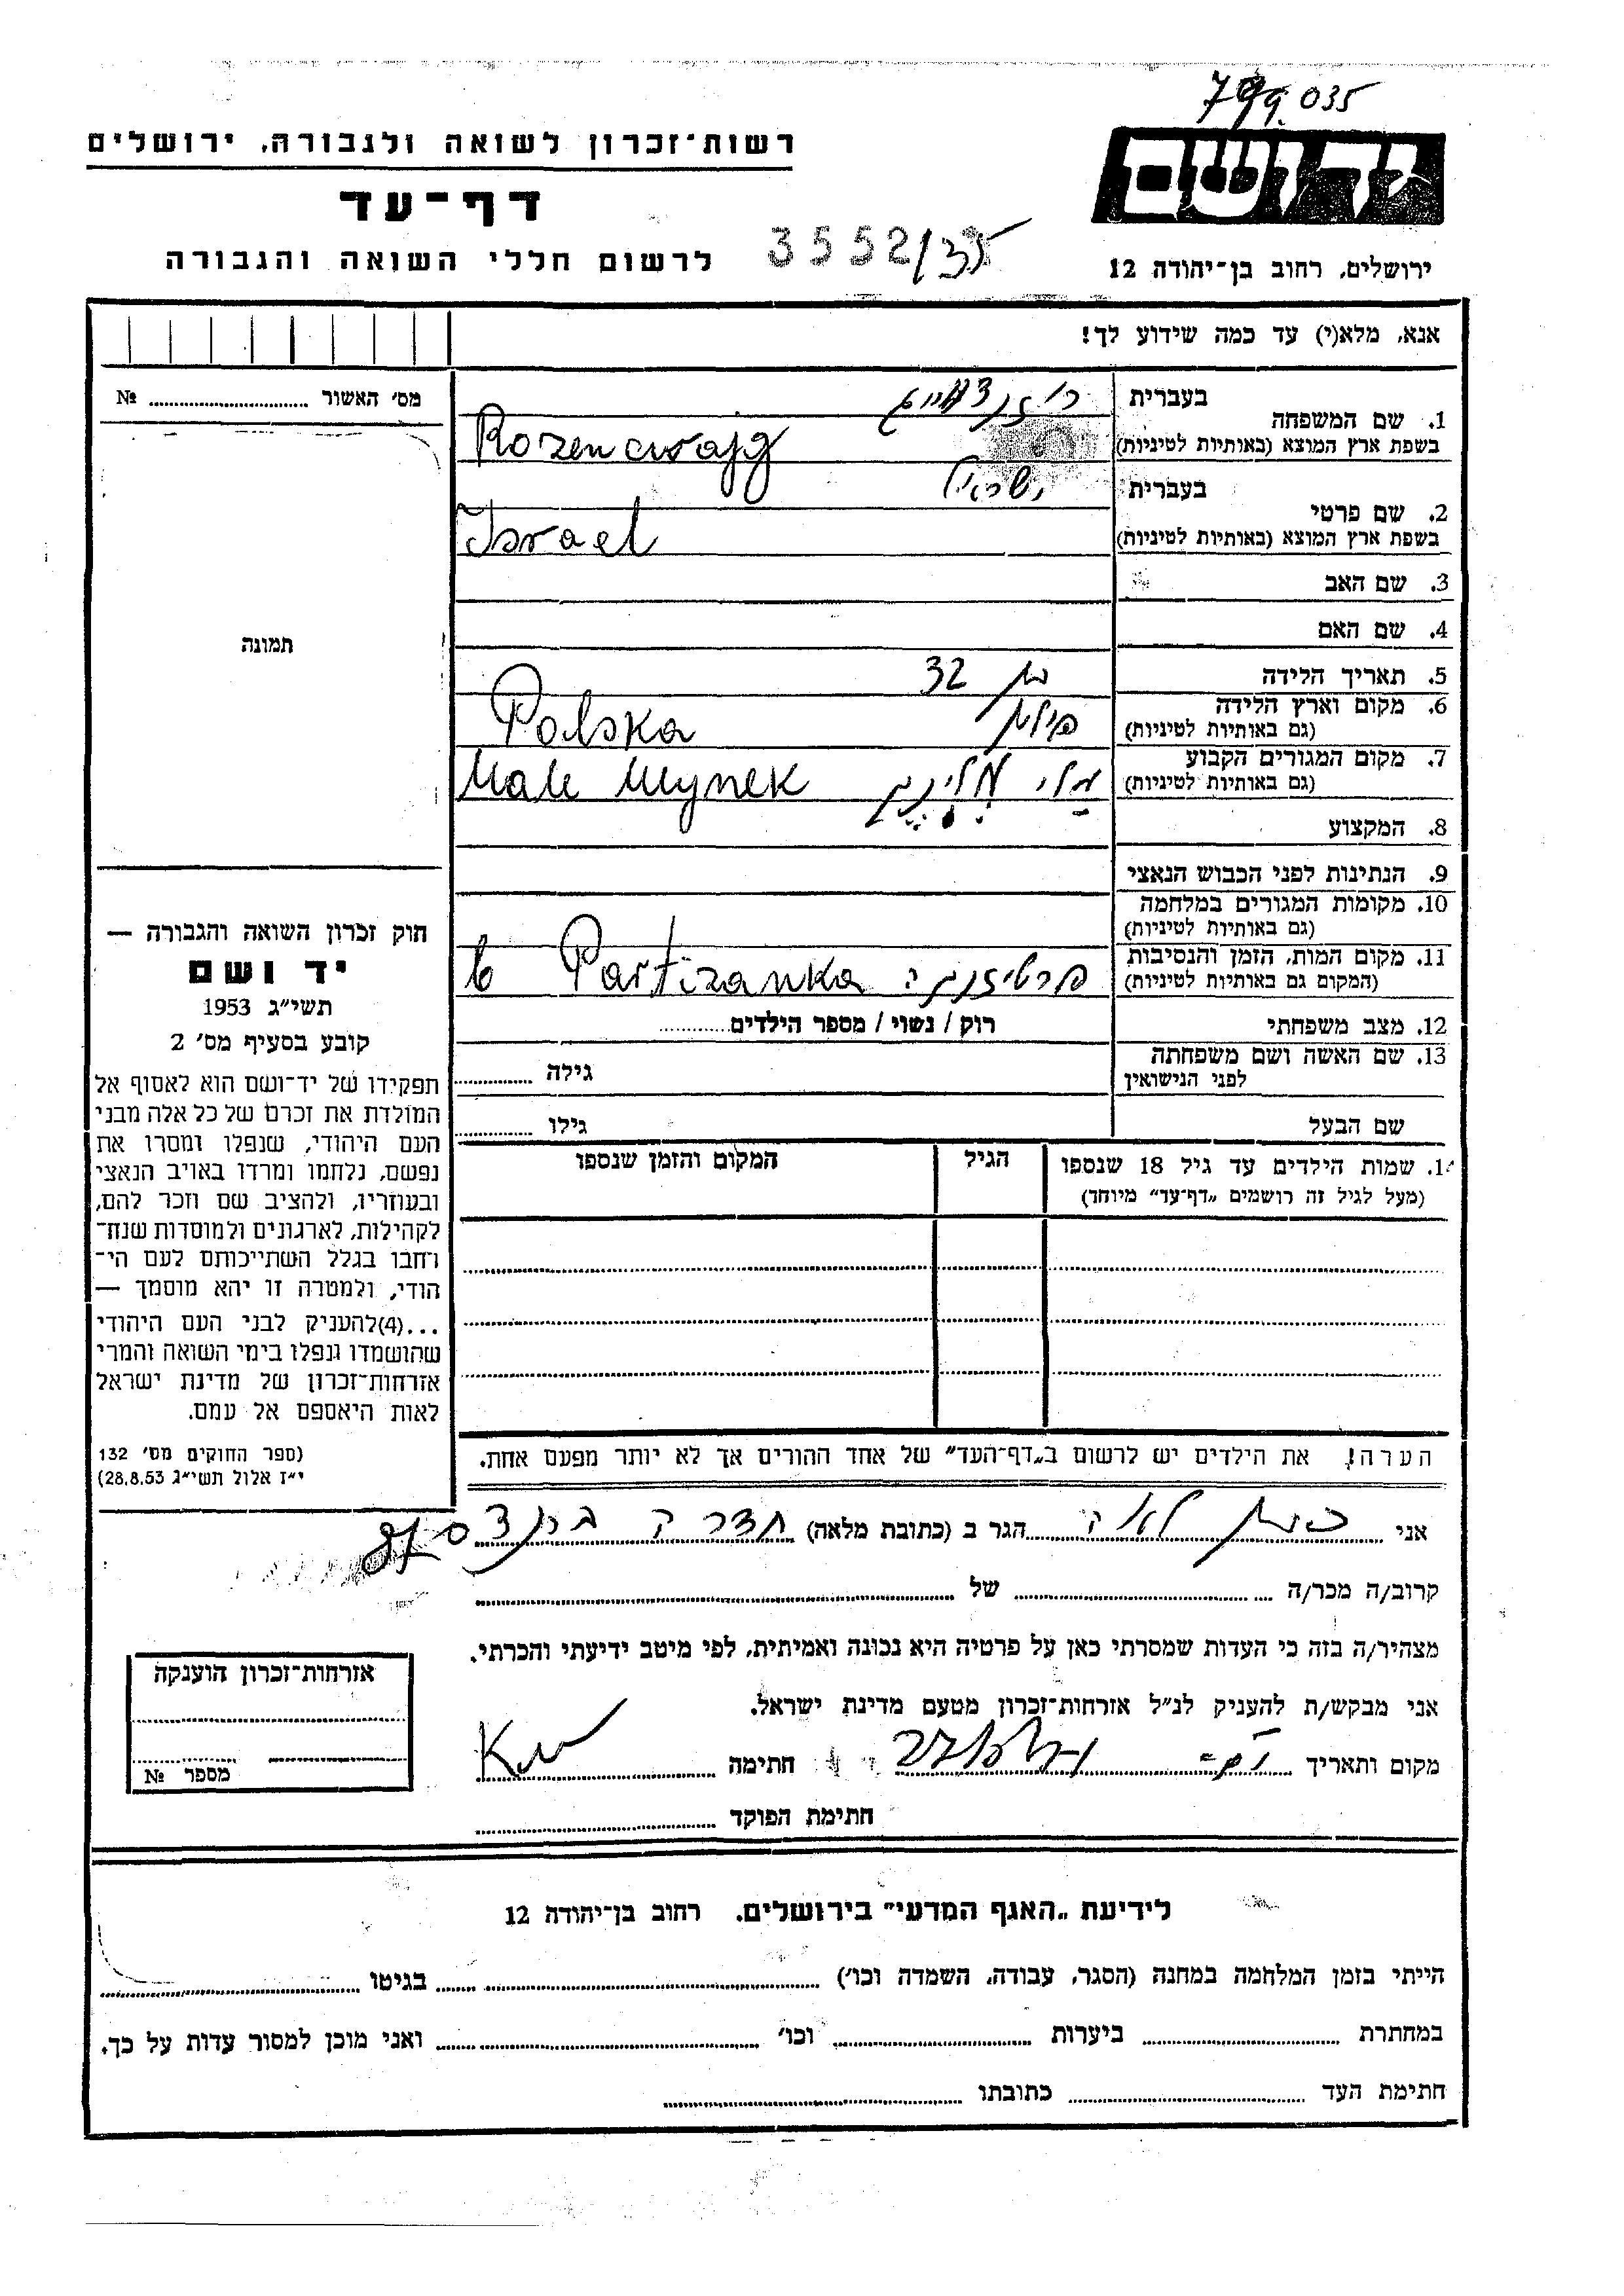 799.035
יד ושם
ירושלים, רחוב בן־יהודה 12
רשות־זכרון לשואה ולגבורה, ירושלים
דף־עד
לרשום חללי השואה והגבורה
3552/35
אנא, מלא(י) עד כמה שידוע לך!
מס׳ האשור ........ №
תמונה
חוק זכרון השואה והגבורה —
יד ושם
תשי״ג 1953
קובע בסעיף מס׳ 2
תפקידו של יד־ושם הוא לאסוף אל
המולדת את זכרם של כל אלה מבני
העם היהודי, שנפלו ומסרו את
נפשם, נלחמו ומרדו באויב הנאצי
ובעוזריו, ולהציב שם וזכר להם,
לקהילות, לארגונים ולמוסדות שנח־
רחבו בגלל השתייכותם לעם הי־
הודי, ולמטרה זו יהא מוסמך —
...(4)להעניק לבני העם היהודי
שהושמדו ונפלו בימי השואה והמרי
אזרחות־זכרון של מדינת ישראל
לאות היאספם אל עמם.
(ספר החוקים מס׳ 132
י״ז אלול תשי״ג 28.8.53)
בעברית
1. שם המשפחה
בשפת ארץ המוצא (באותיות לטיניות) Rozencwajg
בעברית ישראל
2. שם פרטי
בשפת ארץ המוצא (באותיות לטיניות) Israel
3. שם האב
4. שם האם
5. תאריך הלידה בן 32
6. מקום וארץ הלידה פולין Polska
(גם באותיות לטיניות)
7. מקום המגורים הקבוע
(גם באותיות לטיניות)
8. המקצוע
9. הנתינות לפני הכבוש הנאצי
10. מקומות המגורים במלחמה
(גם באותיות לטיניות)
11. מקום המות, הזמן והנסיבות
(המקום גם באותיות לטיניות) פרטיזנקה Partizanka
12. מצב משפחתי רוק / נשוי / מספר הילדים........
13. שם האשה ושם משפחתה
לפני הנישואין גילה ........
שם הבעל גילו ........
14. שמות הילדים עד גיל 18 שנספו הגיל המקום והזמן שנספו
(מעל לגיל זה רושמים „דף־עד” מיוחד)
הערה! את הילדים יש לרשום ב„דף־העד” של אחד ההורים אך לא יותר מפעם אחת.
אני לאה הגר ב (כתובת מלאה) חדרה
קרוב/ה מכר/ה ........ של ........
מצהיר/ה בזה כי העדות שמסרתי כאן על פרטיה היא נכונה ואמיתית, לפי מיטב ידיעתי והכרתי.
אני מבקש/ת להעניק לנ״ל אזרחות־זכרון מטעם מדינת ישראל.
מקום ותאריך ........ חתימה ........
חתימת הפוקד ........
אזרחות־זכרון הוענקה
מספר №
לידיעת „האגף המדעי” בירושלים. רחוב בן־יהודה 12
הייתי בזמן המלחמה במחנה (הסגר, עבודה, השמדה וכו׳) ........ בגיטו ........
במחתרת ........ ביערות ........ וכו׳ ........ ואני מוכן למסור עדות על כך.
חתימת העד ........ כתובתו ........